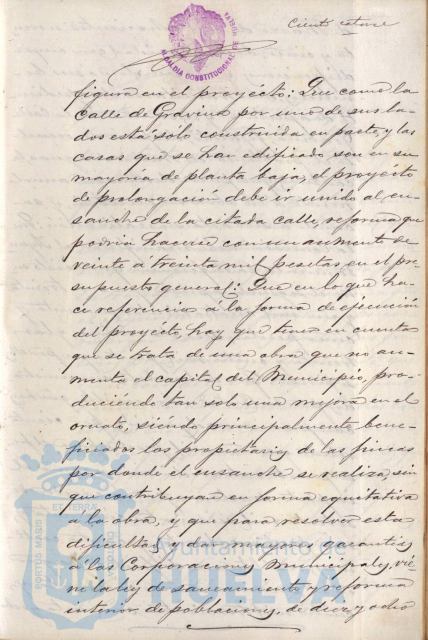 Ciento catorce
ALCALDIA CONSTITUCIONAL DE HUELVA
figura en el proyécto: Que como la
calle de Gravina por uno de sus la-
dos está sólo construida en parte, y las
casas que se han edificado son en su
mayoría de planta baja, el proyécto
de prolongación debe ir unido al en-
sanche de la citada calle, reforma que
podria hacerse con un aumento de
veinte á treinta mil pesetas en el pre-
supuesto general: Que en lo que ha-
ce referencia á la forma de ejecución
del proyécto, hay que tener en cuenta
que se trata de una obra que no au-
menta el capital del Municipio, pro-
duciéndo tan solo una mejora en el
ornato, siendo principalmente bene-
ficiados los propietarios de las fincas
por donde el ensanche se realiza, sin
que contribuyan en forma equitativa
á la obra, y que para resolver esta
dificultad y dar mayores garantias
á las Corporaciones Municipales, vie-
ne la ley de saneamiento y reforma
interior de poblaciones, de diez y ocho
PORTUS MARIS ET TERRAE
Ayuntamiento de
HUELVA